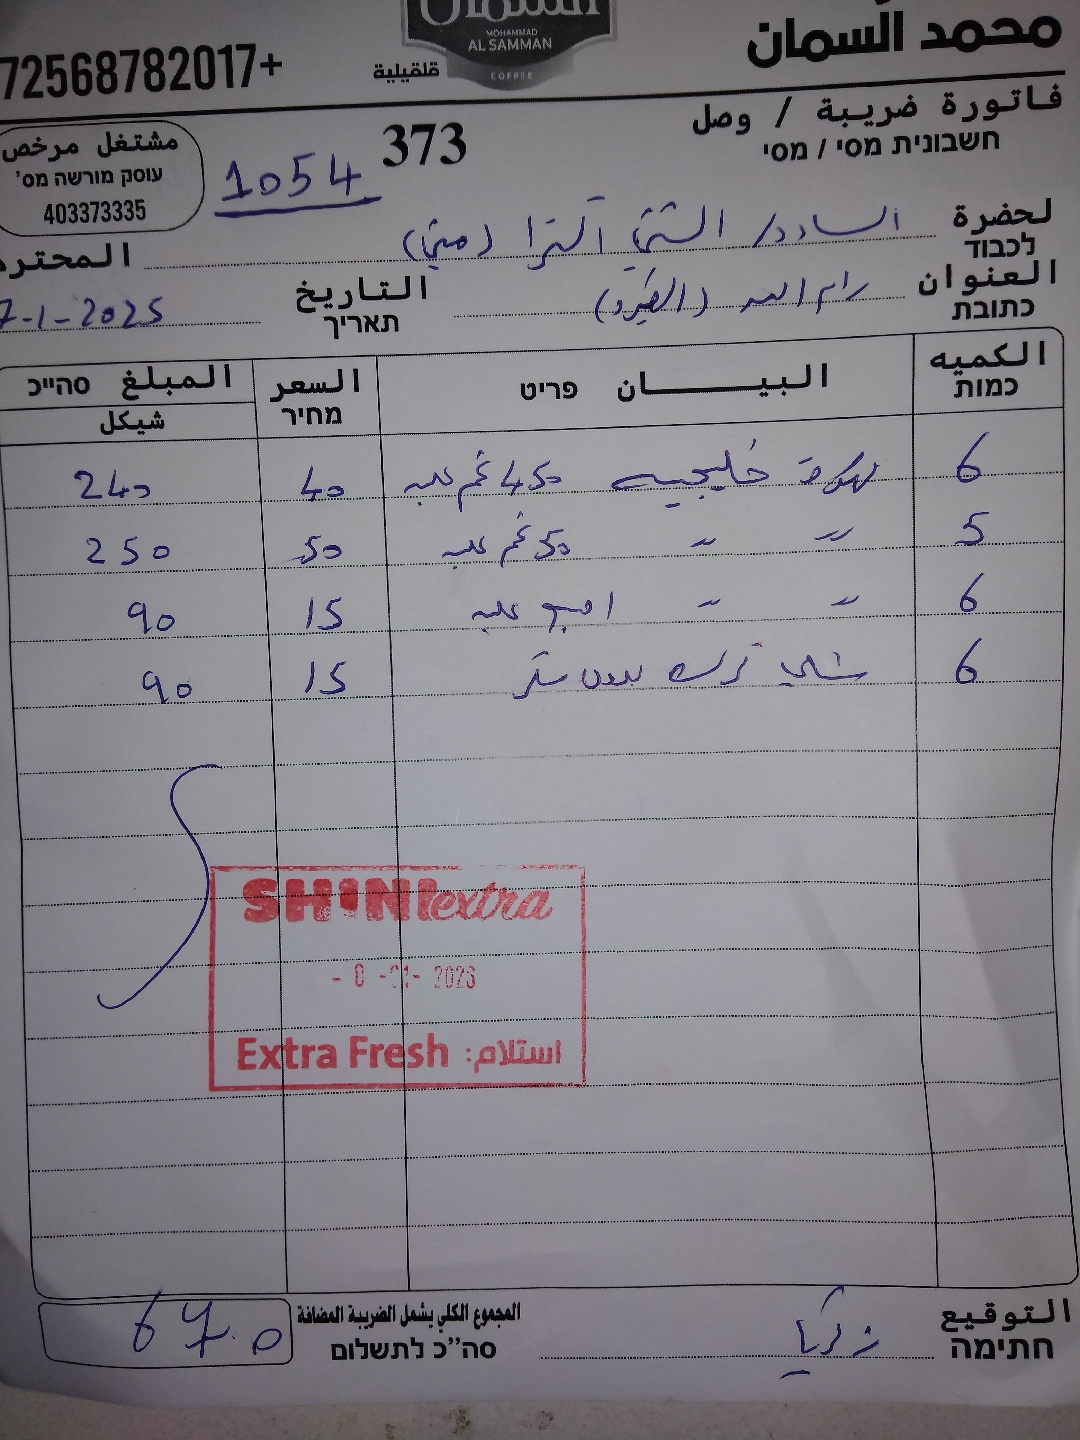 السمان
MOHAMMAD
AL SAMMAN
COFFEE
محمد السمان
قلقيلية
72568782017+
فاتورة ضريبة / وصل
חשבונית מסי / מסי
373
1054
مشتغل مرخص
עוסק מורשה מס'
403373335
لحضرة السادة/ الشني اكسترا (ميني) المحترم
לכבוד
العنوان رام الله
כתובת
التاريخ 7-1-2025
תאריך
الكميه البيـــــــان פריט السعر المبلغ סה"כ
כמות מחיר شيكل
6 قهوة خليجيه 450 غم علبه 40 240
5 〃 〃 50 غم علبه 50 250
6 〃 〃 علبه 15 90
6 شاي ترك بدون سكر 15 90
SHINIextra
2026
Extra Fresh استلام:
المجموع الكلي يشمل الضريبة المضافة 670
סה"כ לתשלום
التوقيع زكريا
חתימה